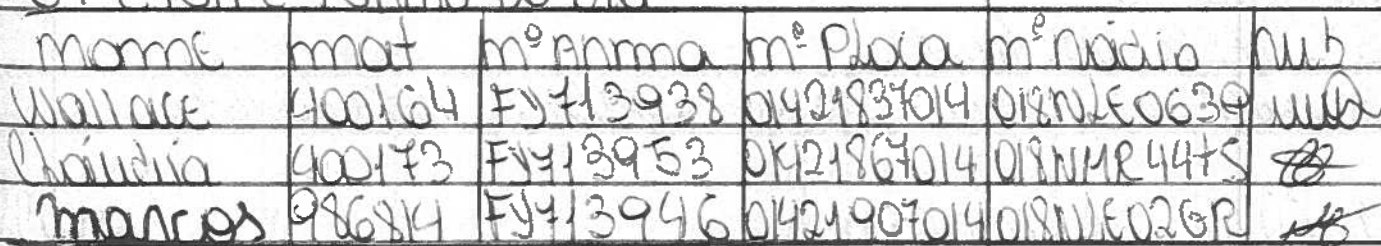 nome mat nº Arma nº Placa nº rádio rub
Wallace 400164 FJ713938 01421837014 018NLE0639
Cláudia 400173 FJ713953 01421867014 018NMR44TS
Marcos 986814 FJ713946 01421907014 018NLE02GR